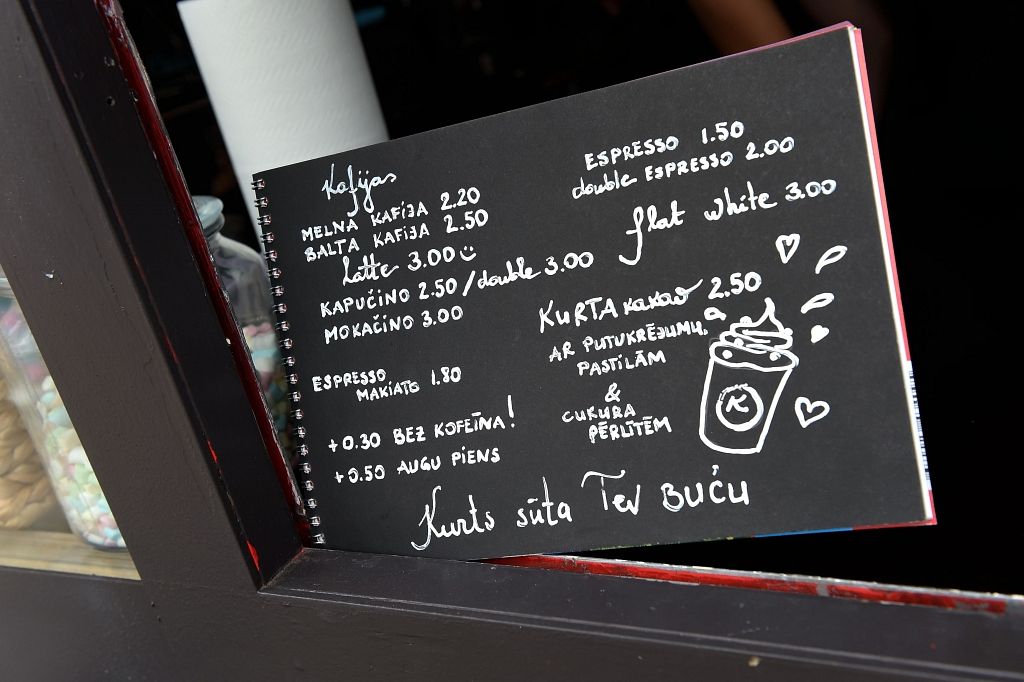 Kafijas
MELNA KAFIJA 2.20
BALTA KAFIJA 2.50
Latte 3.00
KAPUČINO 2.50 / double 3.00
MOKAČINO 3.00
ESPRESSO
MAKIATO 1.80
+0.30 BEZ KOFEĪNA!
+0.50 AUGU PIENS
ESPRESSO 1.50
double ESPRESSO 2.00
flat white 3.00
KURTA kakao 2.50
AR PUTUKRĒJUMU,
PASTILĀM
&
CUKURA
PĒRLĪTĒM
K
Kurts sūta Tev BUČU